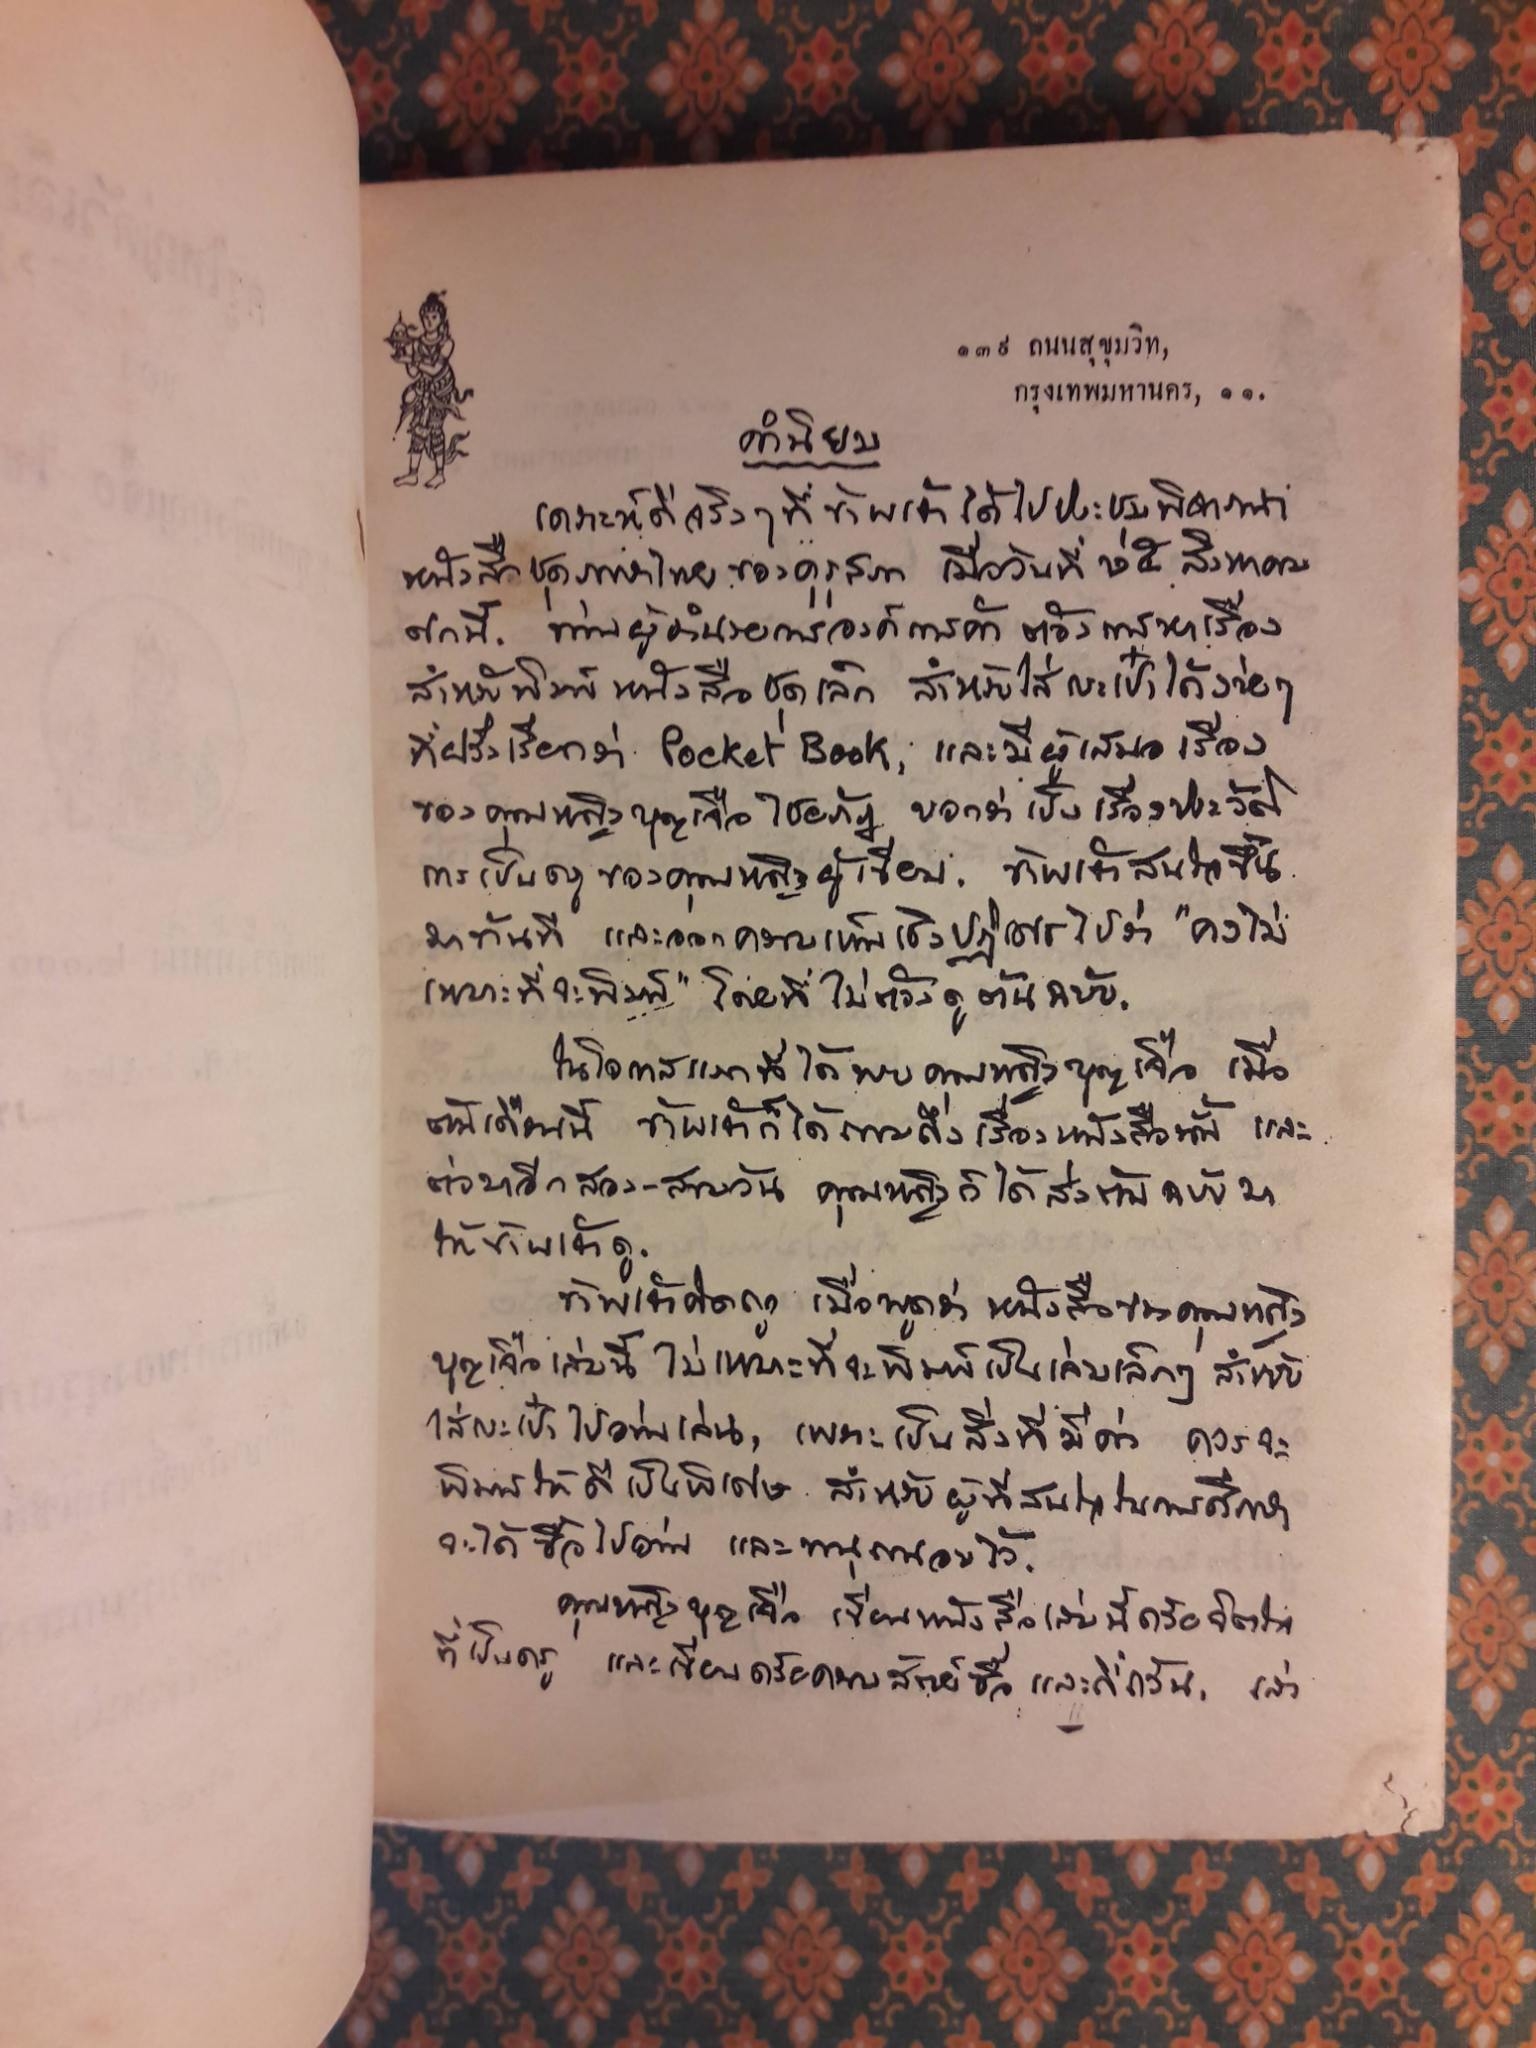 ๑๓๙ ถนนสุขุมวิท,
กรุงเทพมหานคร, ๑๑.
คำนิยม
เคราะห์ดีจริงๆที่ ข้าพเจ้าได้ไปประชุมพิจารณา
หนังสือชุดภาษาไทยของคุรุสภา เมื่อวันที่ ๒๕ สิงหาคม
ศกนี้. ท่านผู้อำนวยการองค์การค้า ต้องการหาเรื่อง
สำหรับพิมพ์หนังสือชุดเล็ก สำหรับใส่กะเป๋าได้ง่ายๆ
ที่ฝรั่งเรียกว่า Pocket Book, และมีผู้เสนอเรื่อง
ของคุณหญิงบุญเจือ ไชยภัฏ บอกว่าเป็นเรื่องประวัติ
การเป็นครูของคุณหญิงผู้เขียน. ข้าพเจ้าสนใจขึ้น
มาทันที และออกความเห็นเชิงปฏิเสธไปว่า "คงไม่
เหมาะที่จะพิมพ์" โดยที่ไม่ต้องดูต้นฉบับ.
ในโอกาสแรกที่ได้พบคุณหญิงบุญเจือ เมื่อ
ต้นเดือนนี้ ข้าพเจ้าก็ได้ถามถึงเรื่องหนังสือนี้ และ
ต่อมาอีกสอง-สามวัน คุณหญิงก็ได้ส่งต้นฉบับมา
ให้ข้าพเจ้าดู.
ข้าพเจ้าคิดถูก เมื่อพูดว่า หนังสือของคุณหญิง
บุญเจือเล่มนี้ ไม่เหมาะที่จะพิมพ์เป็นเล่มเล็กๆ สำหรับ
ใส่กะเป๋าไปอ่านเล่น, เพราะเป็นสิ่งที่มีค่า ควรจะ
พิมพ์ให้ดีเป็นพิเศษ สำหรับผู้ที่สนใจในการศึกษา
จะได้ซื้อไปอ่าน และทนุถนอมไว้.
คุณหญิงบุญเจือ เขียนหนังสือเล่มนี้ด้วยจิตใจ
ที่เป็นครู และเขียนด้วยความสัตย์ซื่อ และถี่ถ้วน, เล่า